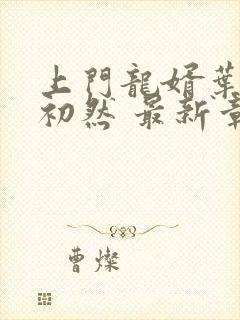 上門龍婿葉
初然 最新章
曹燦